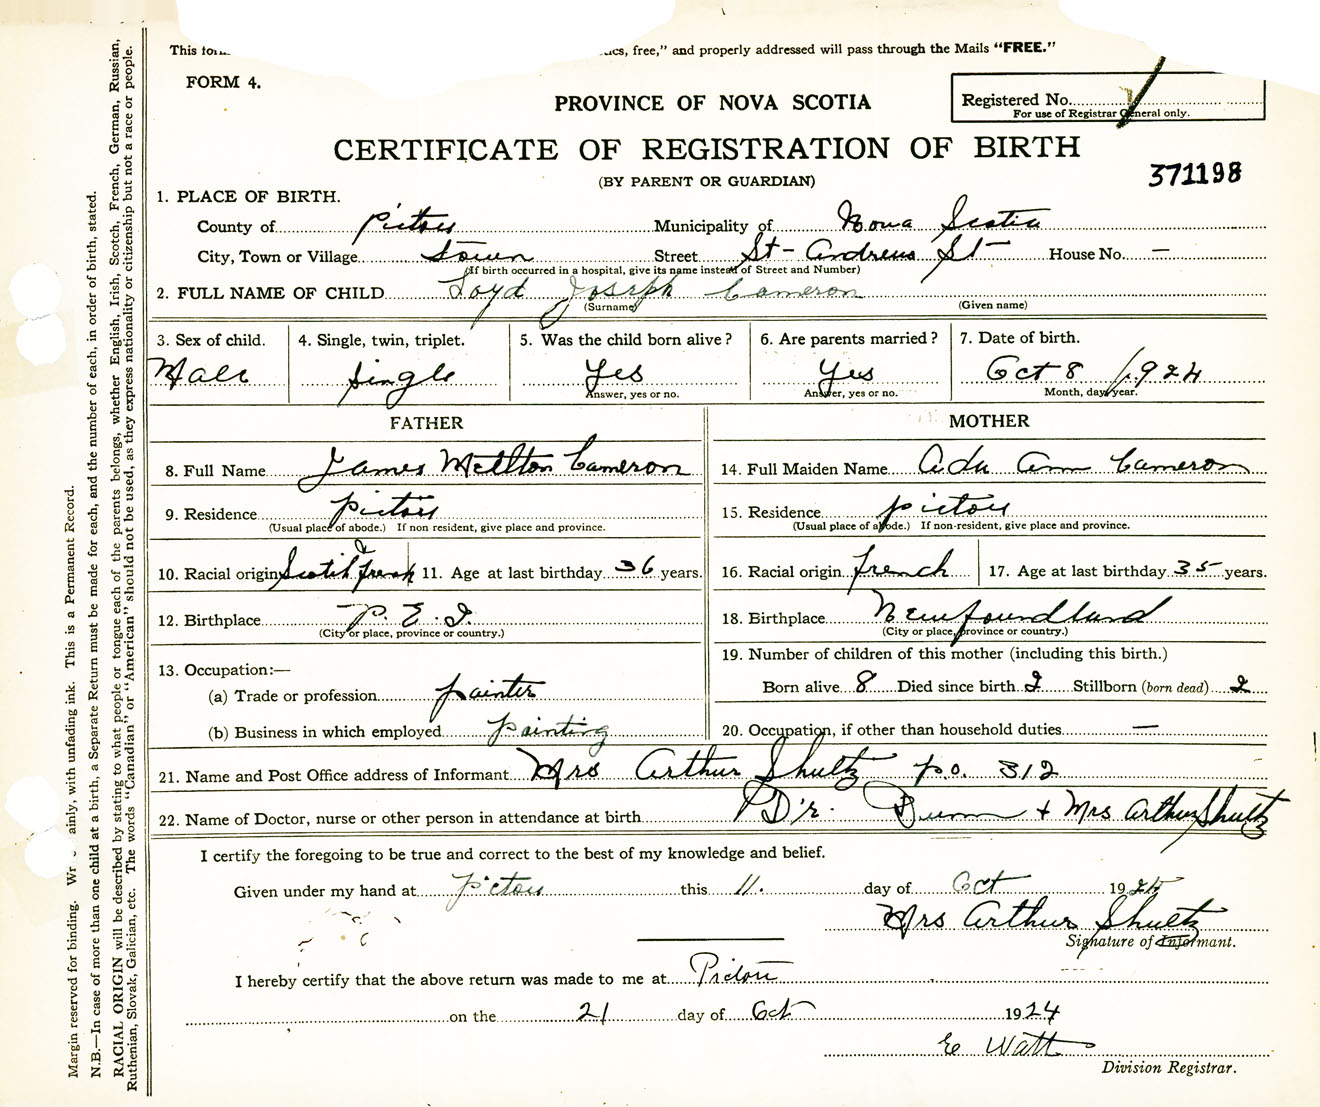 This form
ics, free," and properly addressed will pass through the Mails "FREE."
FORM 4.
Registered No.
For use of Registrar General only.
PROVINCE OF NOVA SCOTIA
CERTIFICATE OF REGISTRATION OF BIRTH
(BY PARENT OR GUARDIAN)
371198
1. PLACE OF BIRTH.
County of Pictou Municipality of Nova Scotia
City, Town or Village Town Street St- Andrews St- House No. —
(If birth occurred in a hospital, give its name instead of Street and Number)
2. FULL NAME OF CHILD Loyd Joseph Cameron
(Surname) (Given name)
3. Sex of child. 4. Single, twin, triplet. 5. Was the child born alive? 6. Are parents married? 7. Date of birth.
Male single Yes Yes Oct 8 /1924
Answer, yes or no. Answer, yes or no. Month, day, year.
FATHER MOTHER
8. Full Name James Cameron 14. Full Maiden Name Ada Ann Cameron
9. Residence Pictou 15. Residence Pictou
(Usual place of abode.) If non resident, give place and province. (Usual place of abode.) If non-resident, give place and province.
10. Racial origin Scotish & french 11. Age at last birthday 36 years. 16. Racial origin french 17. Age at last birthday 35 years.
12. Birthplace P. E. I. 18. Birthplace Newfoundland
(City or place, province or country.) (City or place, province or country.)
13. Occupation:— 19. Number of children of this mother (including this birth.)
(a) Trade or profession painter Born alive 8 Died since birth 2 Stillborn (born dead) 2
(b) Business in which employed painting 20. Occupation, if other than household duties —
21. Name and Post Office address of Informant Mrs Arthur Shultz p.o. 312
22. Name of Doctor, nurse or other person in attendance at birth D'r. Dunn + Mrs Arthur Shultz
I certify the foregoing to be true and correct to the best of my knowledge and belief.
Given under my hand at Pictou this 11. day of Oct 1924
Mrs Arthur Shultz
Signature of Informant.
I hereby certify that the above return was made to me at Pictou
on the 21 day of Oct 1924
E Watt
Division Registrar.
Margin reserved for binding. Wr ainly, with unfading ink. This is a Permanent Record.
N.B.—In case of more than one child at a birth, a Separate Return must be made for each, and the number of each, in order of birth, stated.
RACIAL ORIGIN will be described by stating to what people or tongue each of the parents belongs, whether English, Irish, Scotch, French, German, Russian,
Ruthenian, Slovak, Galician, etc. The words "Canadian" or "American" should not be used, as they express nationality or citizenship but not a race or people.